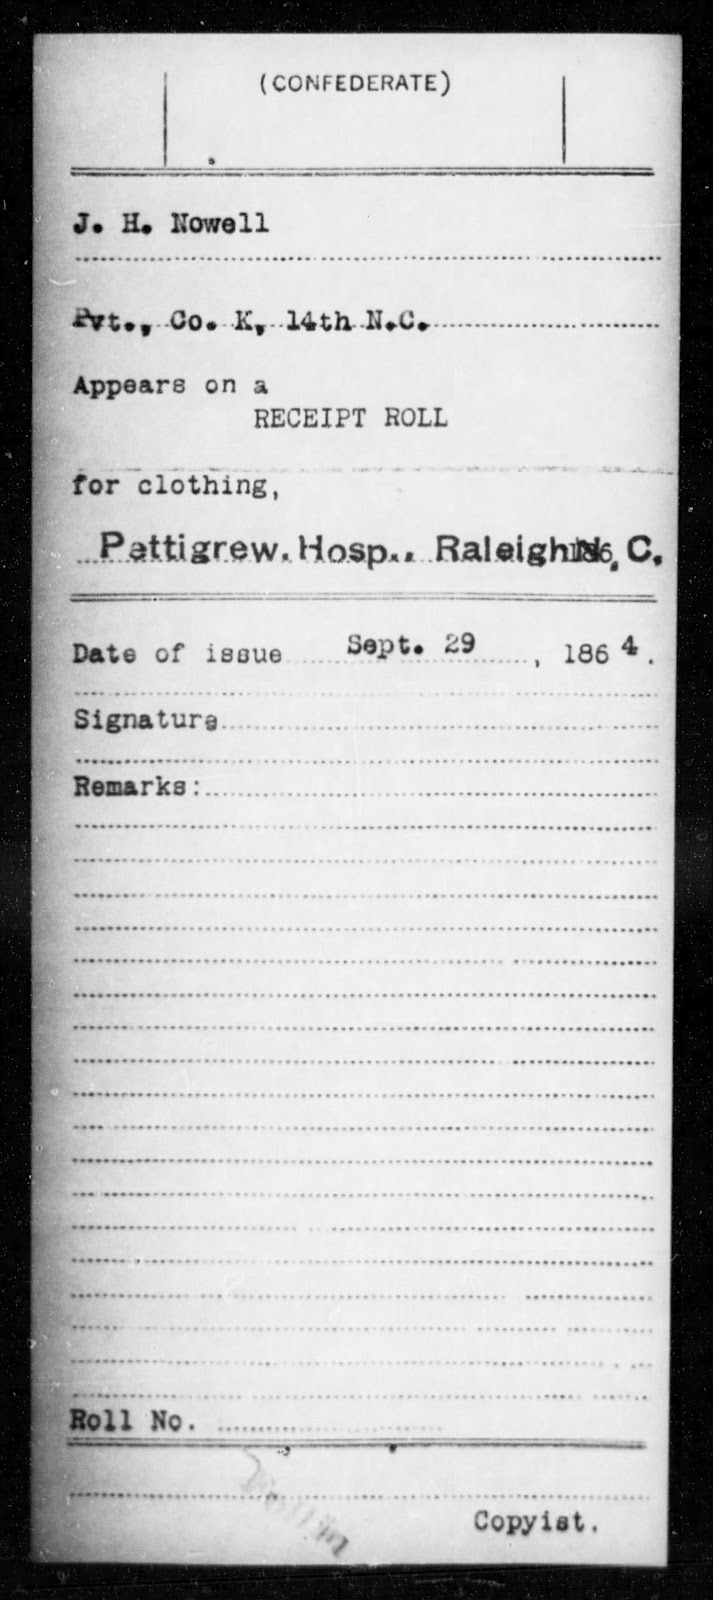 (CONFEDERATE)
J. H. Nowell
Pvt., Co. K, 14th N.C.
Appears on a
RECEIPT ROLL
for clothing,
Pettigrew Hosp., Raleigh N. C.
Date of issue Sept. 29, 1864.
Signature
Remarks:
Roll No.
Copyist.